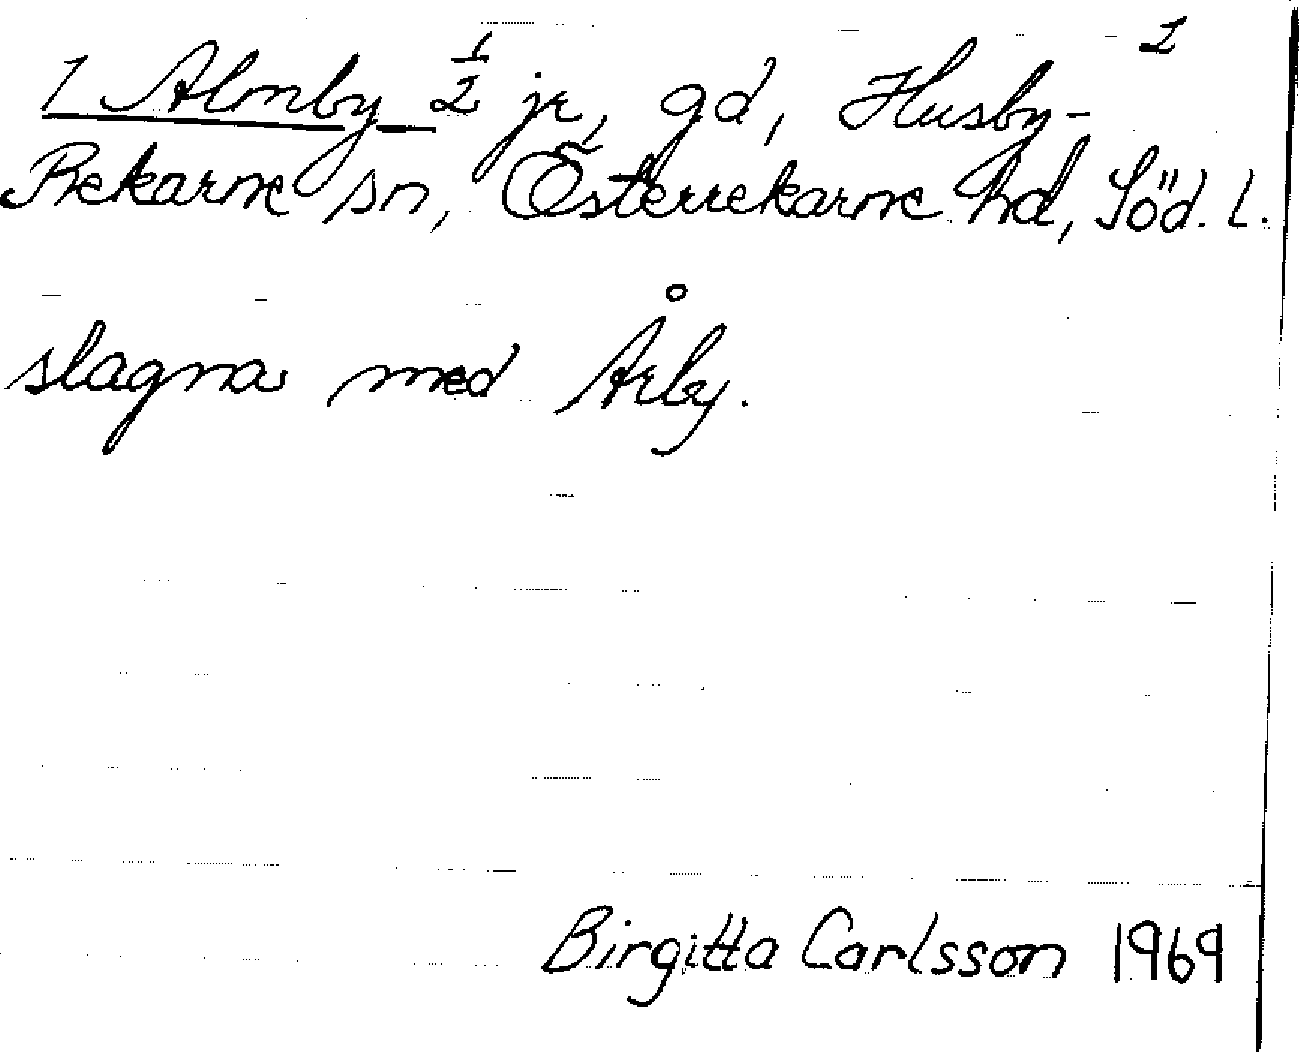 2
1 Almby 1/2 jr, gd, Husby-
Rekarne sn, Österrekarne hd, Söd. l.
slagna med Årby.
Birgitta Carlsson 1969